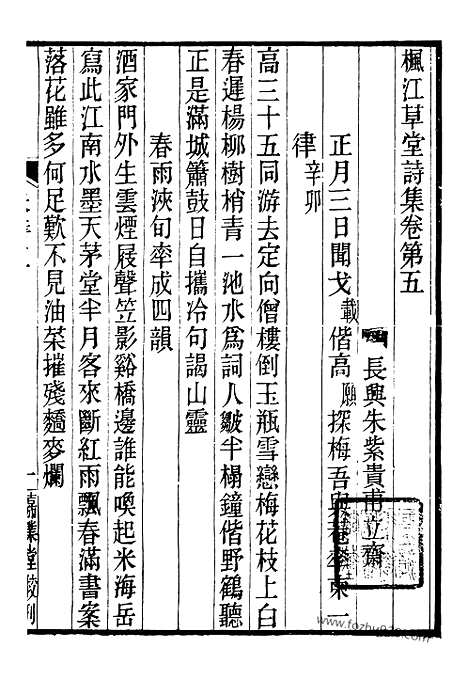 楓江草堂詩集卷第五
長興朱紫貴甫立齋
正月三日聞戈載偕高愿探梅吾與菴率柬一
律辛卯
高三十五同游去定向僧樓倒玉瓶雪戀梅花枝上白
春遲楊柳樹梢青一池水爲詞人皺半榻鐘偕野鶴聽
正是滿城簫鼓日自攜冷句謁山靈
春雨浹旬率成四韻
酒家門外生雲煙屐聲笠影谿橋邊誰能喚起米海岳
寫此江南水墨天茅堂半月客來斷紅雨飄春滿書案
落花雖多何足歎不見油菜摧殘麵麥爛
一 嘉業堂校刊
www.fozhu920.com